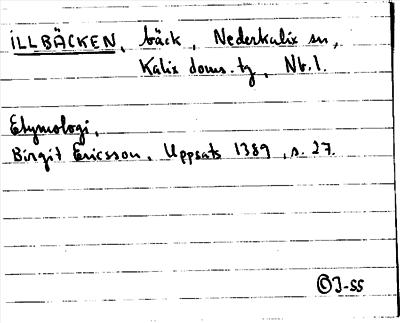 ILLBÄCKEN, bäck, Nederkalix sn,
Kalix doms. tg, Nb. l.
Etymologi,
Birgit Ericsson, Uppsats 1389, s. 27.
©J-SS